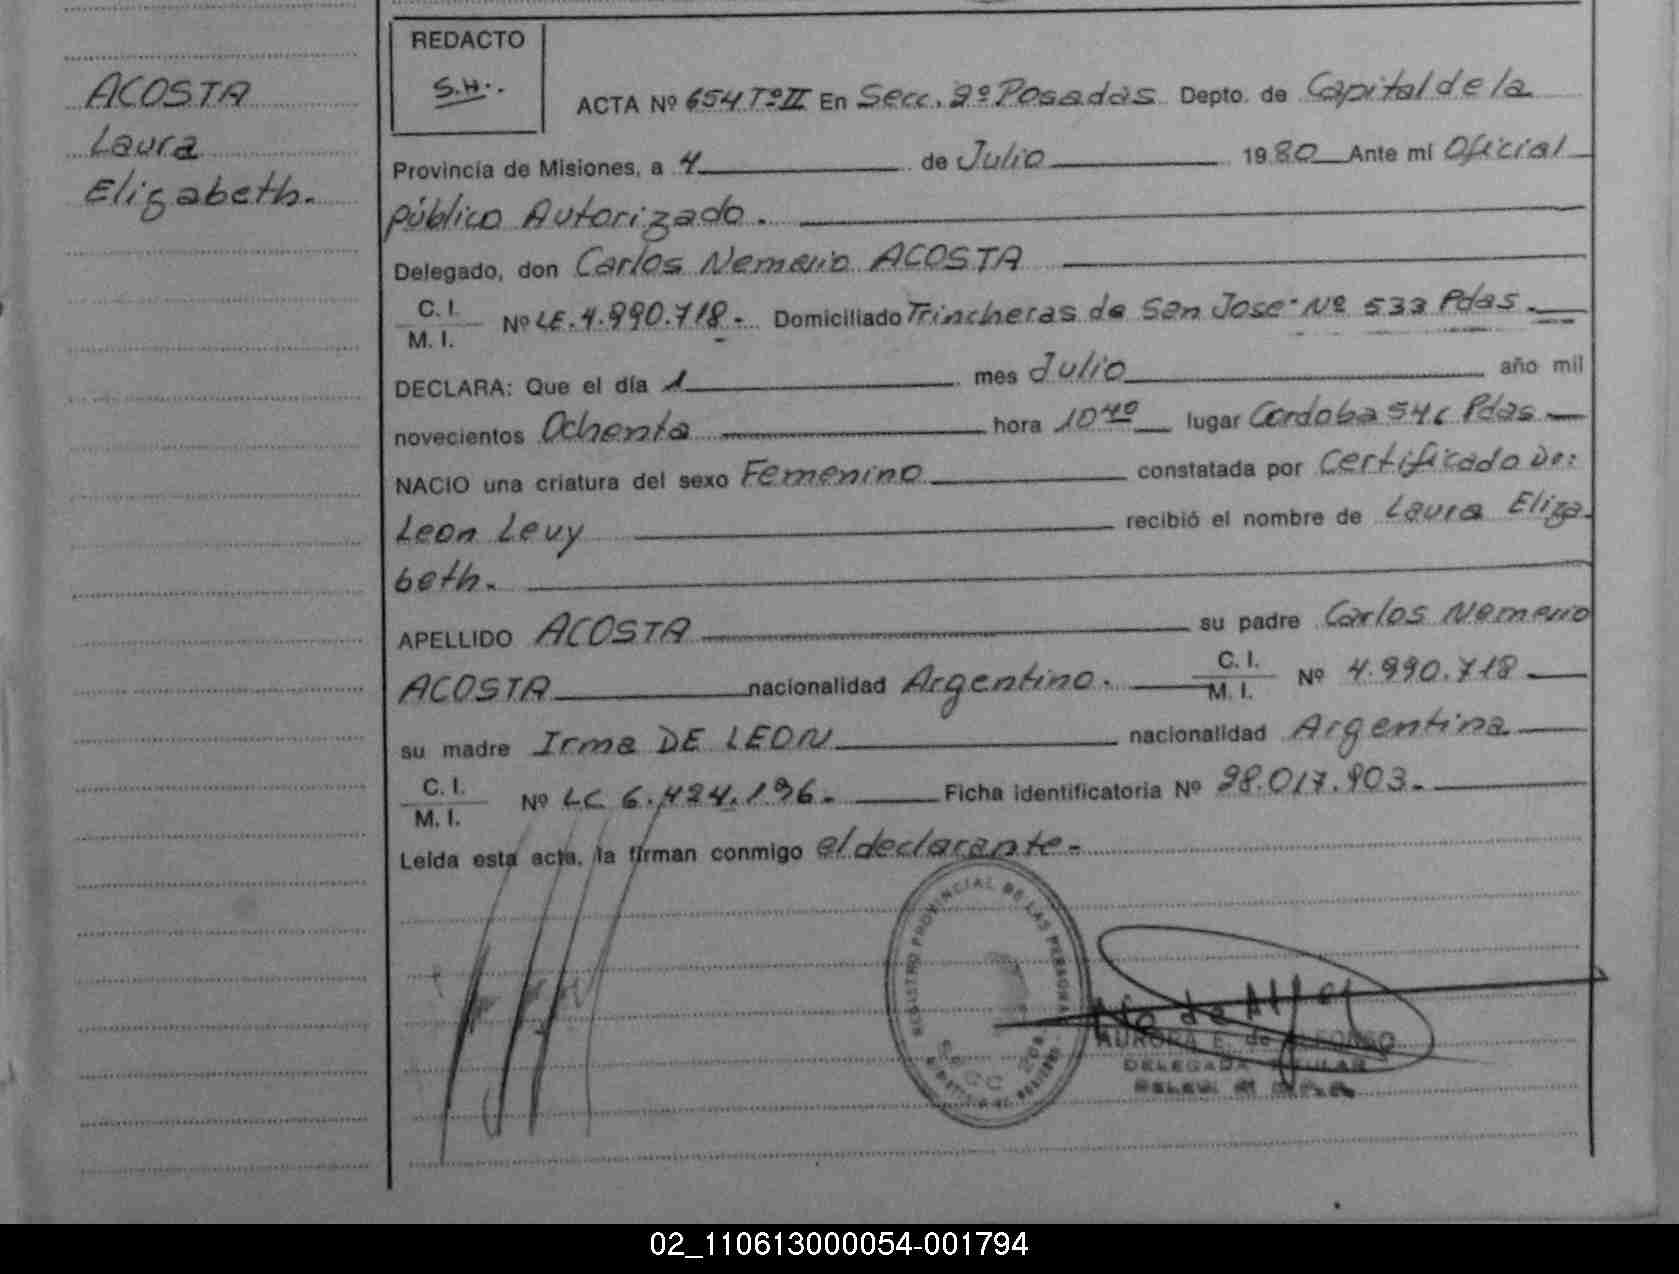 ACOSTA
Laura
Elizabeth.
REDACTO
S.H..
ACTA Nº 654 Tº II En Secc. 9º Posadas Depto. de Capital de la
Provincia de Misiones, a 4 de Julio 1980 Ante mí Oficial
público Autorizado.
Delegado, don Carlos Nemerio ACOSTA
C. I.
M. I.
Nº LE. 4.990.718.- Domiciliado Trincheras de San Jose Nº 533 Pdas.
DECLARA: Que el día 1 mes Julio año mil
novecientos Ochenta hora 10 40 lugar Cordoba 546 Pdas
NACIO una criatura del sexo Femenino constatada por Certificado Dr:
Leon Levy recibió el nombre de Laura Eliza
beth.
APELLIDO ACOSTA su padre Carlos Nemerio
ACOSTA nacionalidad Argentino. C. I. M. I. Nº 4.990.718
su madre Irma DE LEON nacionalidad Argentina
C. I.
M. I.
Nº LC 6.424.196.- Ficha identificatoria Nº 28.017.903.
Leída esta acta, la firman conmigo el declarante.-
REGISTRO PROVINCIAL DE LAS PERSONAS
AURORA E. de ALFONSO
DELEGADA TITULAR
02_110613000054-001794